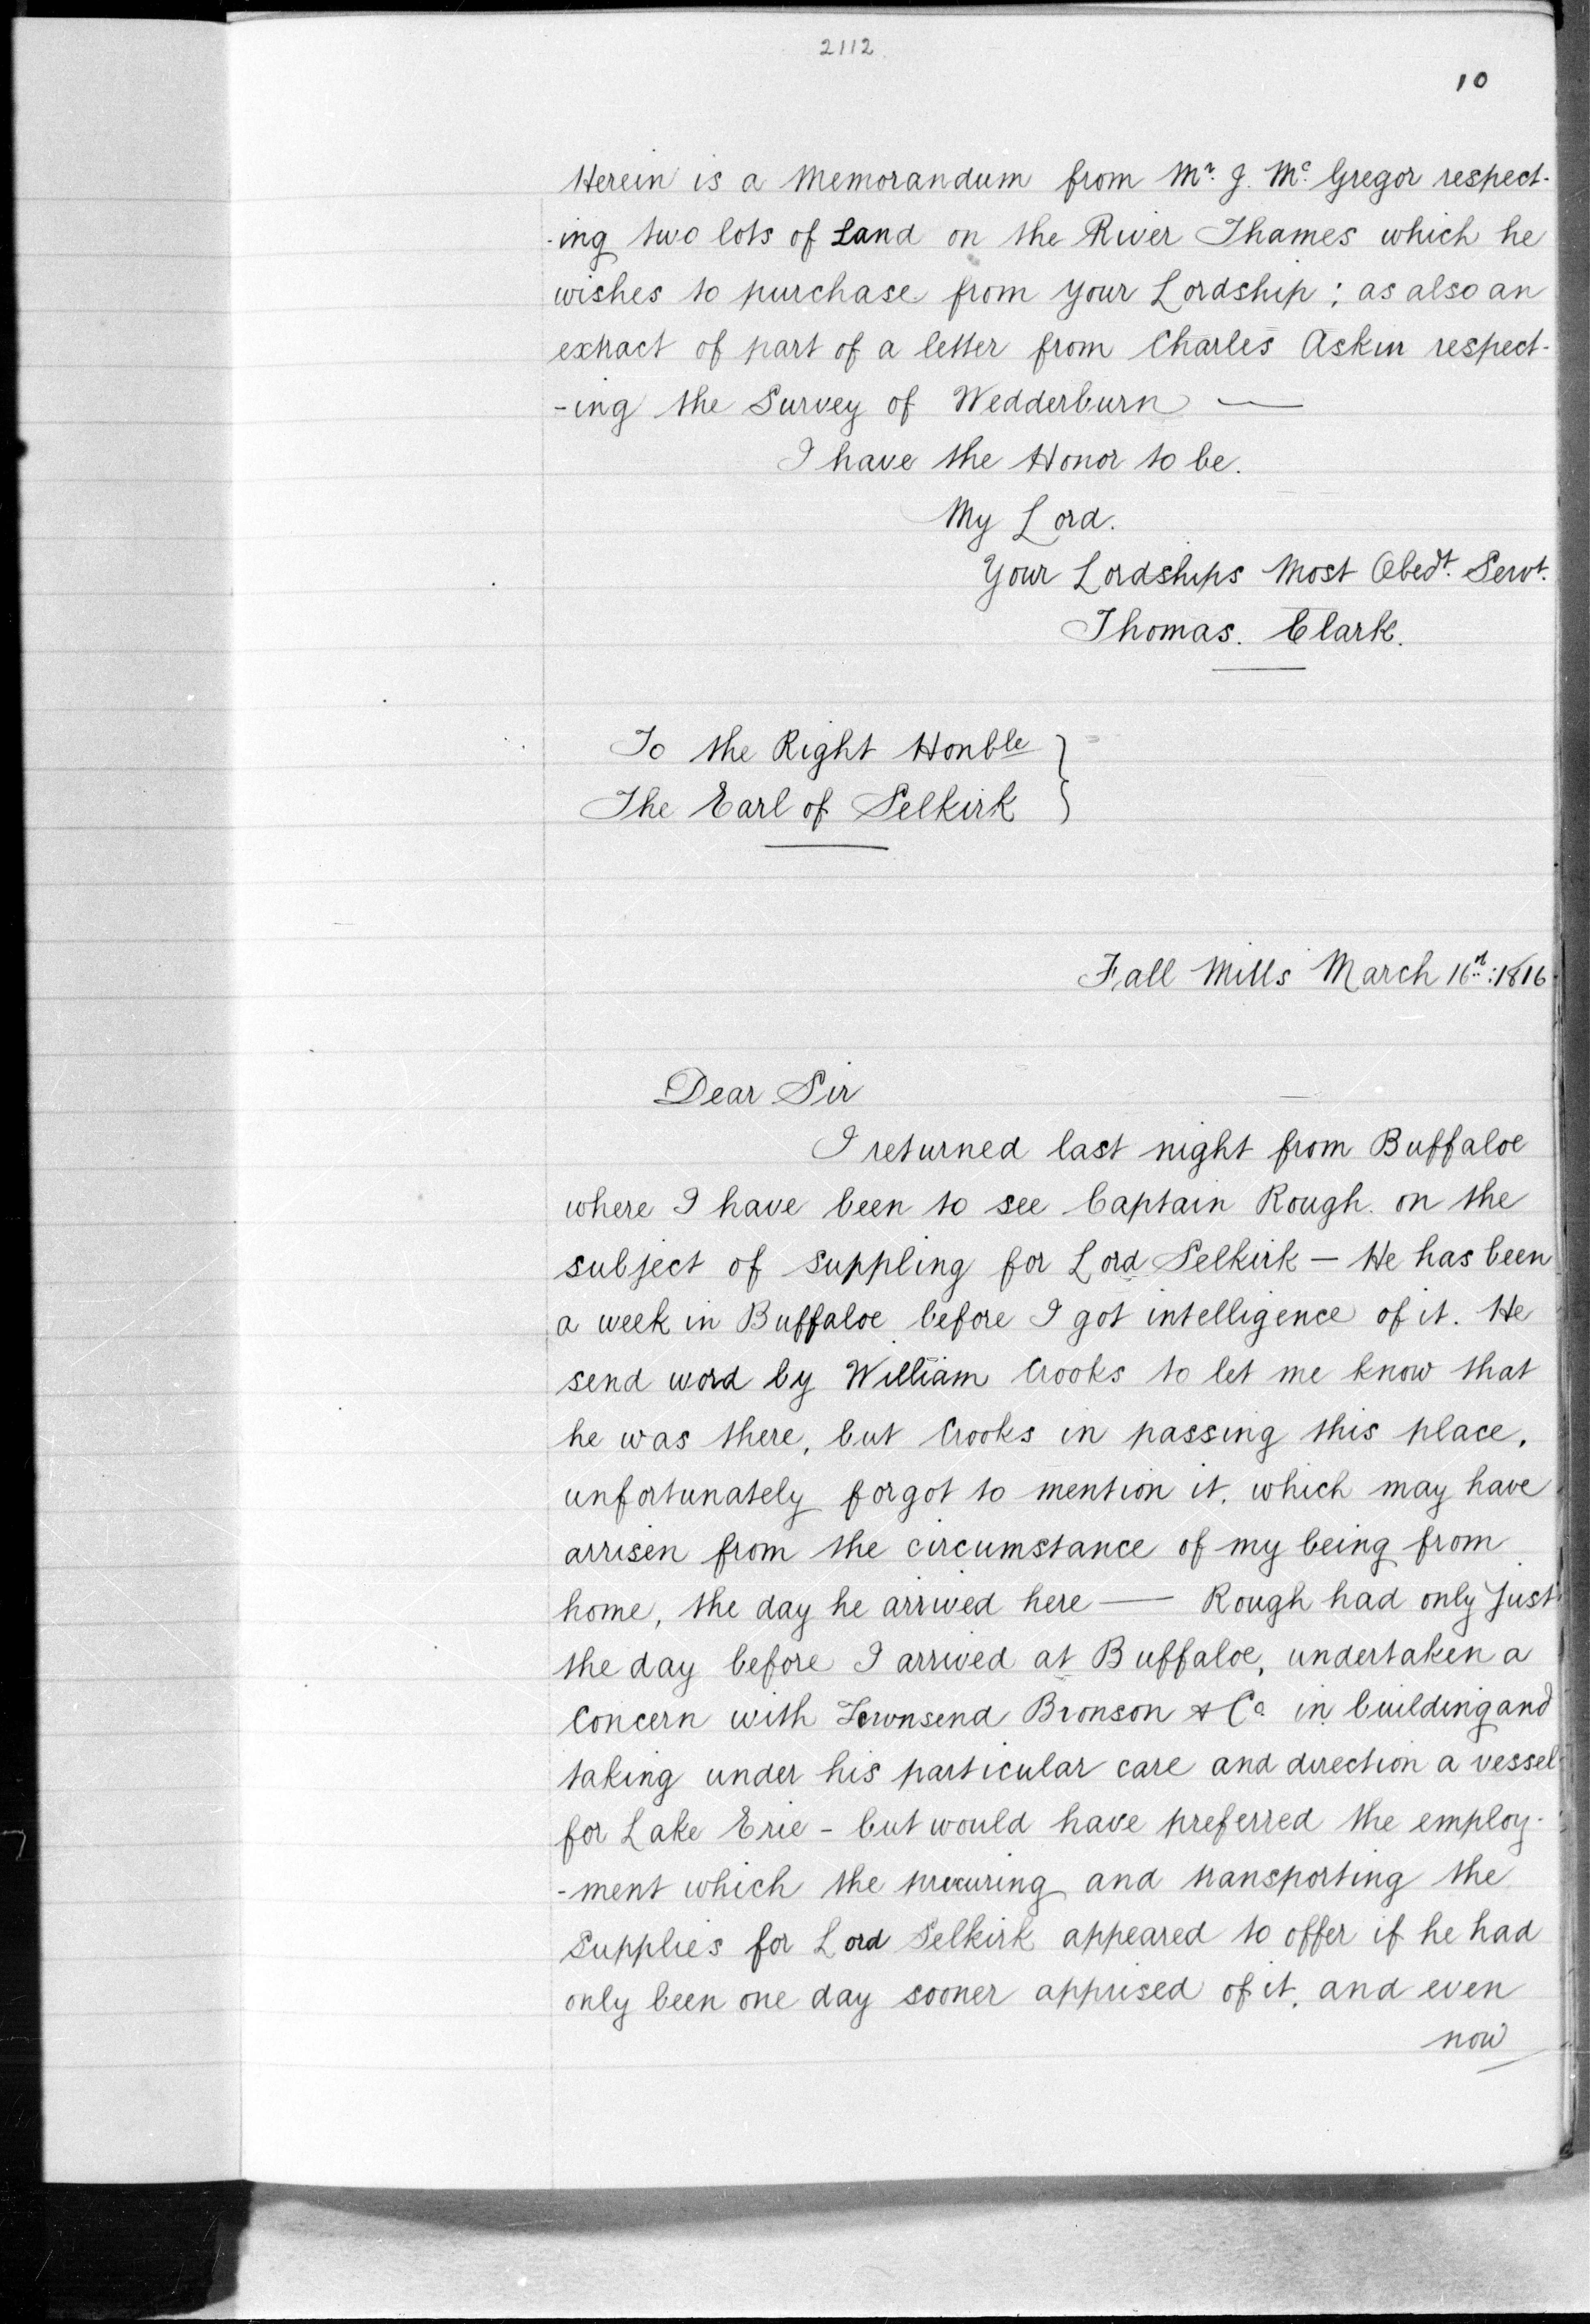 2112
10
Herein is a Memorandum from Mr. J. Mc. Gregor respect-
-ing two lots of Land on the River Thames which he
wishes to purchase from your Lordship; as also an
extract of part of a letter from Charles Askin respect-
-ing the Survey of Wedderburn —
I have the Honor to be.
My Lord.
Your Lordships Most Obedt. Servt.
Thomas. Clark.
To the Right Honble }
The Earl of Selkirk }
Fall Mills March 16th: 1816
Dear Sir
I returned last night from Buffaloe
where I have been to see Captain Rough. on the
subject of suppling for Lord Selkirk — He has been
a week in Buffaloe before I got intelligence of it. He
send word by William Crooks to let me know that
he was there, but Crooks in passing this place,
unfortunately forgot to mention it, which may have
arrisen from the circumstance of my being from
home, the day he arrived here — Rough had only just
the day before I arrived at Buffaloe, undertaken a
Concern with Townsend Bronson & Co in building and
taking under his particular care and direction a vessel
for Lake Erie - but would have preferred the employ-
-ment which the procuring and transporting the
supplies for Lord Selkirk appeared to offer if he had
only been one day sooner apprised of it, and even
now